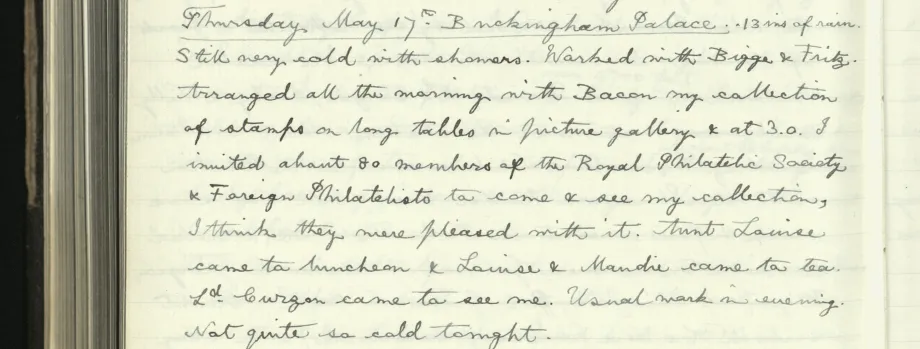 Thursday, May 17th. Buckingham Palace. .13 ins of rain.
Still very cold with showers. Worked with Bigge & Fritz.
Arranged all the morning with Bacon my collection
of stamps on long tables in picture gallery & at 3.0. I
invited about 80 members of the Royal Philatelic Society
& Foreign Philatelists to come & see my collection,
I think they were pleased with it. Aunt Louise
came to luncheon & Louise & Maudie came to tea.
Ld. Curzon came to see me. Usual work in evening.
Not quite so cold tonight.